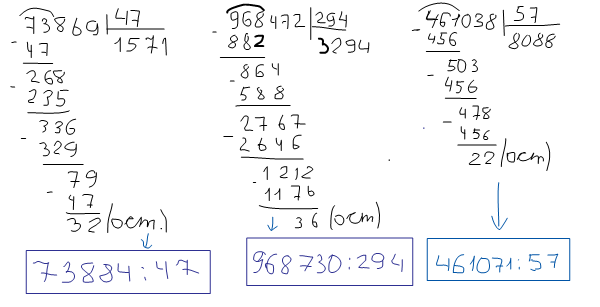 73869 47
- 47 1571
268
- 235
336
- 329
79
- 47
32 (ост.)
73884:47
- 968472 294
882 3294
864
- 588
2767
- 2646
1212
- 1176
36 (ост)
968730:294
- 461038 57
456 8088
- 503
456
- 478
456
22 (ост)
461071:57